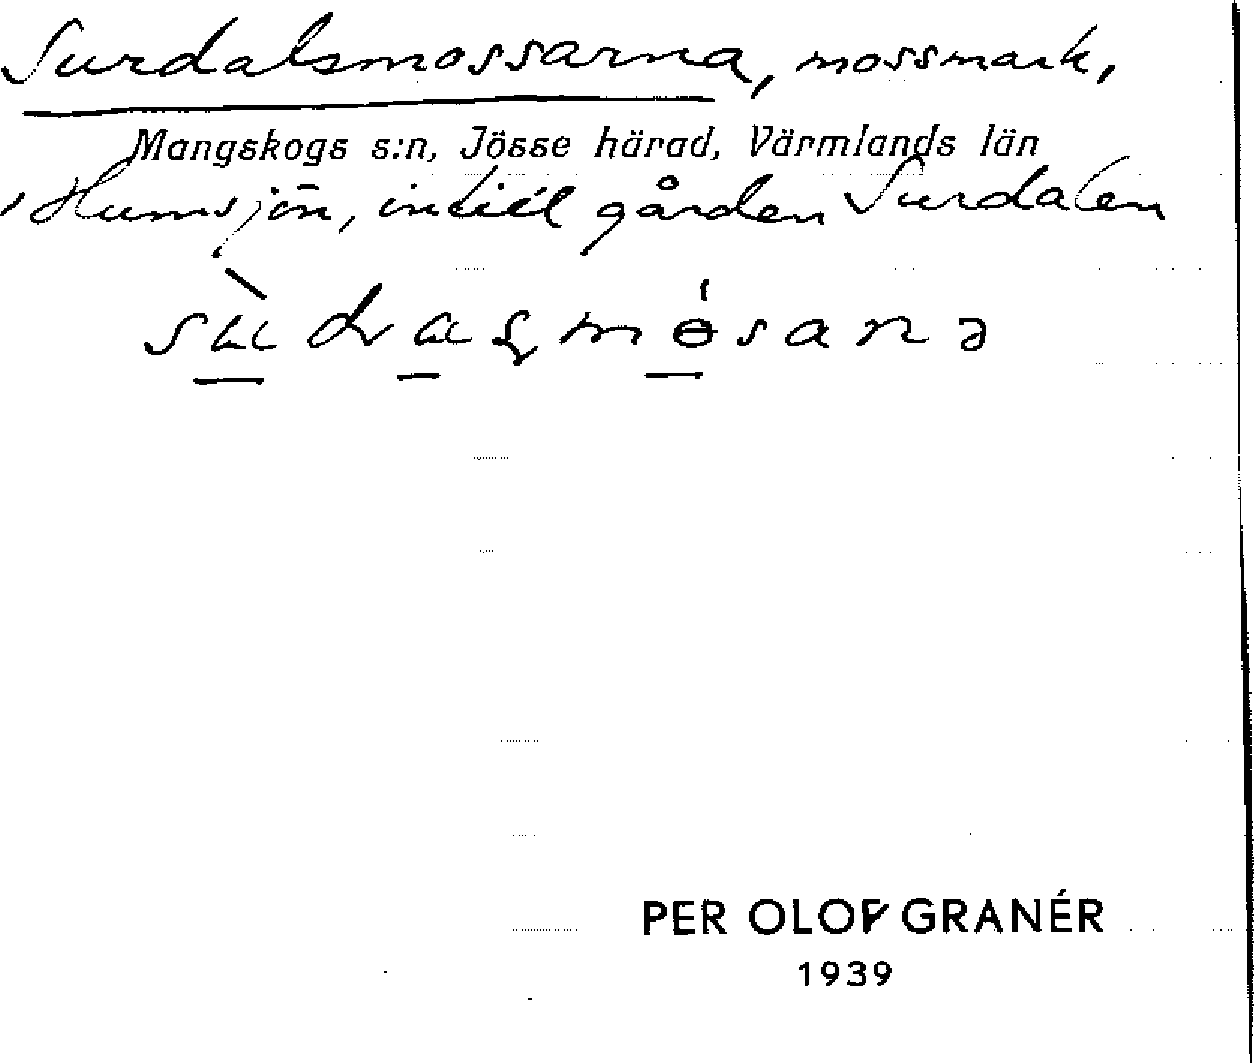 Surdalsmossarna, mossmark,
Mangskogs s:n, Jösse härad, Värmlands län
, Humsjön, intill gården Surdalen
PER OLOF GRANÉR
1939